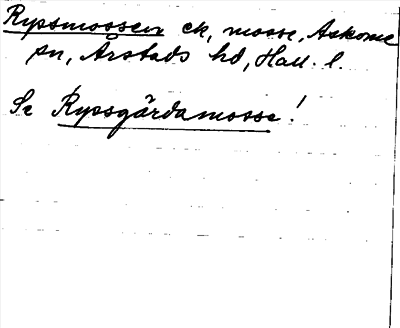 Rypsmossen ek, mosse, Askome
sn, Årstads hd, Hall. l.
Se Rypsgärdamosse!